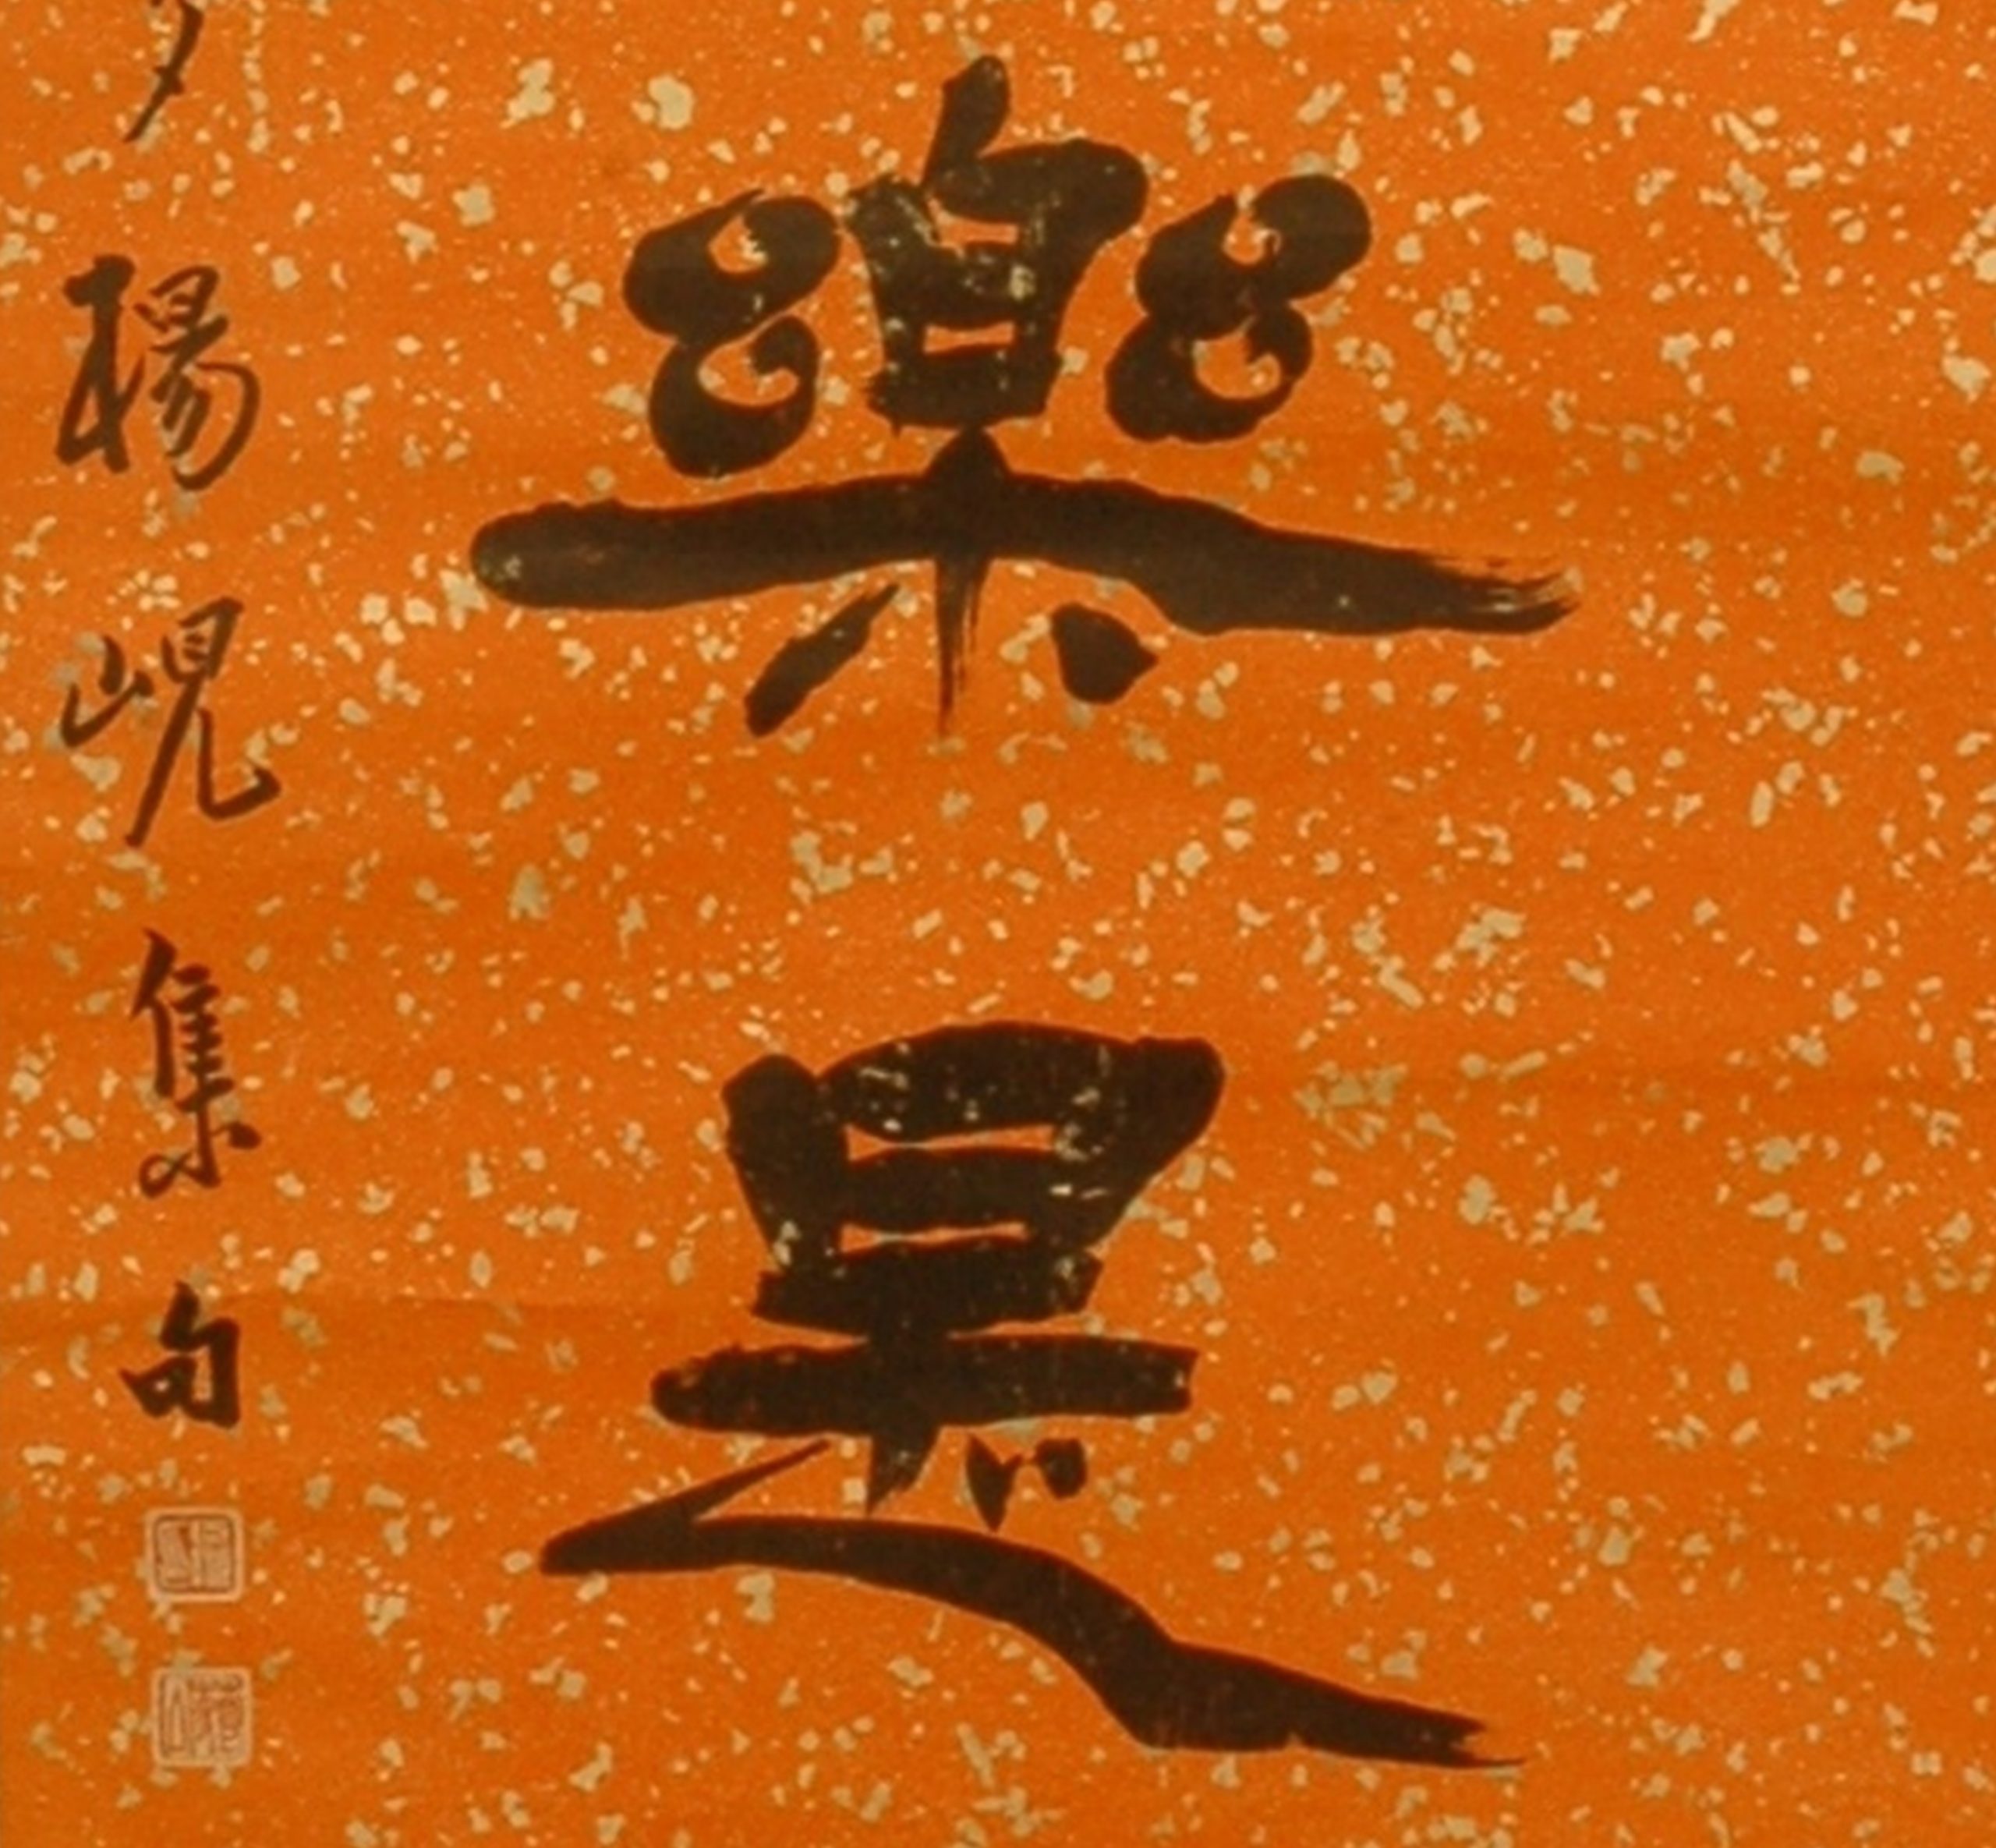 樂是
楊峴集句